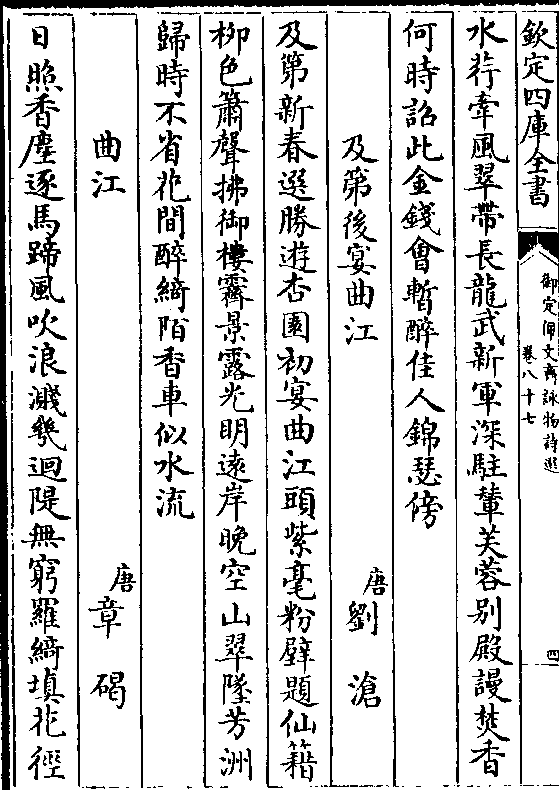 欽定四庫全書
御定佩文齋詠物詩選
卷八十七
四
水荇牽風翠帶長龍武新軍深駐輦芙蓉别殿謾焚香
何時詔此金錢會暫醉佳人錦瑟傍
及第後宴曲江
唐劉滄
及第新春選勝遊杏園初宴曲江頭紫毫粉壁題仙籍
栁色簫聲拂御樓霽景露光明遠岸晚空山翠墜芳洲
歸時不省花間醉綺陌香車似水流
曲江
唐章碣
日照香塵逐馬蹄風吹浪濺幾迴隄無窮羅綺填花徑